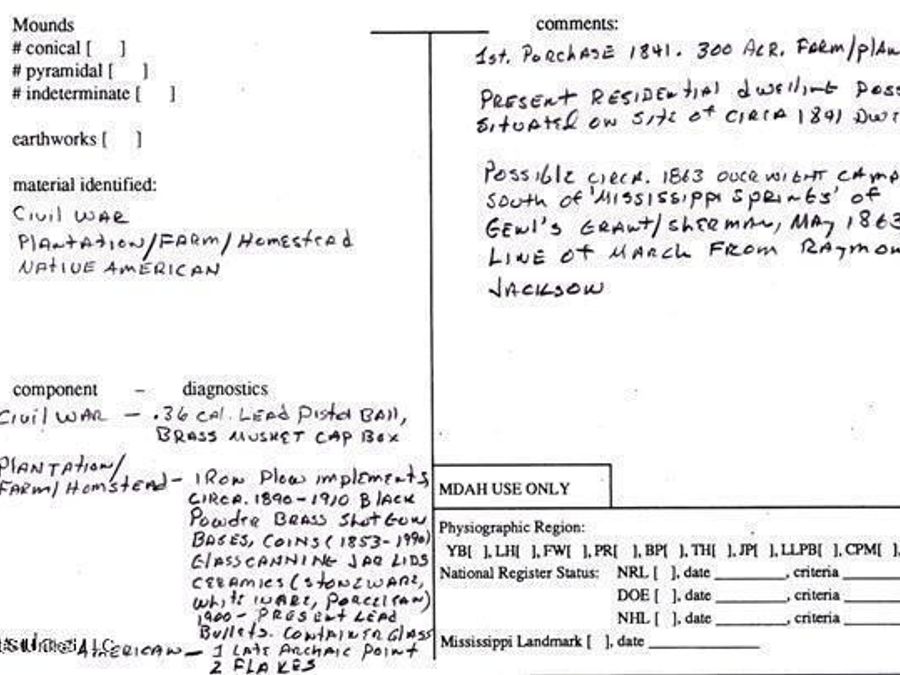 Mounds
# conical [ ]
# pyramidal [ ]
# indeterminate [ ]
earthworks [ ]
material identified:
Civil WAR
Plantation/Farm/Homestead
NATIVE AMERICAN
component – diagnostics
Civil WAR – .36 cal. Lead Pistol Ball,
BRASS MUSKET CAP BOX
PLANTATION/
FARM/Homstead – IRON Plow implements
CIRCA. 1890-1910 Black
Powder BRASS Shot Gun
BASES, COINS (1853-1990)
GLASS CANNING JAR LIDS
CERAMICS (STONEWARE,
White WARE, Porcelian)
1900 - PRESENT LEAD
Bullets. Container Glass
AMERICAN – 1 Late Archaic Point
2 FLAKES
comments:
1st. PURCHASE 1841. 300 ACR. FARM/plan
PRESENT RESIDENTIAL dwelling Poss
SITUATED ON Site of CIRCA 1841 Dw
Possible circa. 1863 OVERNIGHT CAMP
South of 'MISSISSIPPI SPRINGS' of
GENL'S GRANT/SHERMAN, MAY 1863
LINE of MARCH FROM RAYMON
JACKSON
MDAH USE ONLY
Physiographic Region:
YB[ ], LH[ ], FW[ ], PR[ ], BP[ ], TH[ ], JP[ ], LLPB[ ], CPM[ ],
National Register Status: NRL [ ], date ________, criteria
DOE [ ], date ________, criteria
NHL [ ], date ________, criteria
Mississippi Landmark [ ], date ________